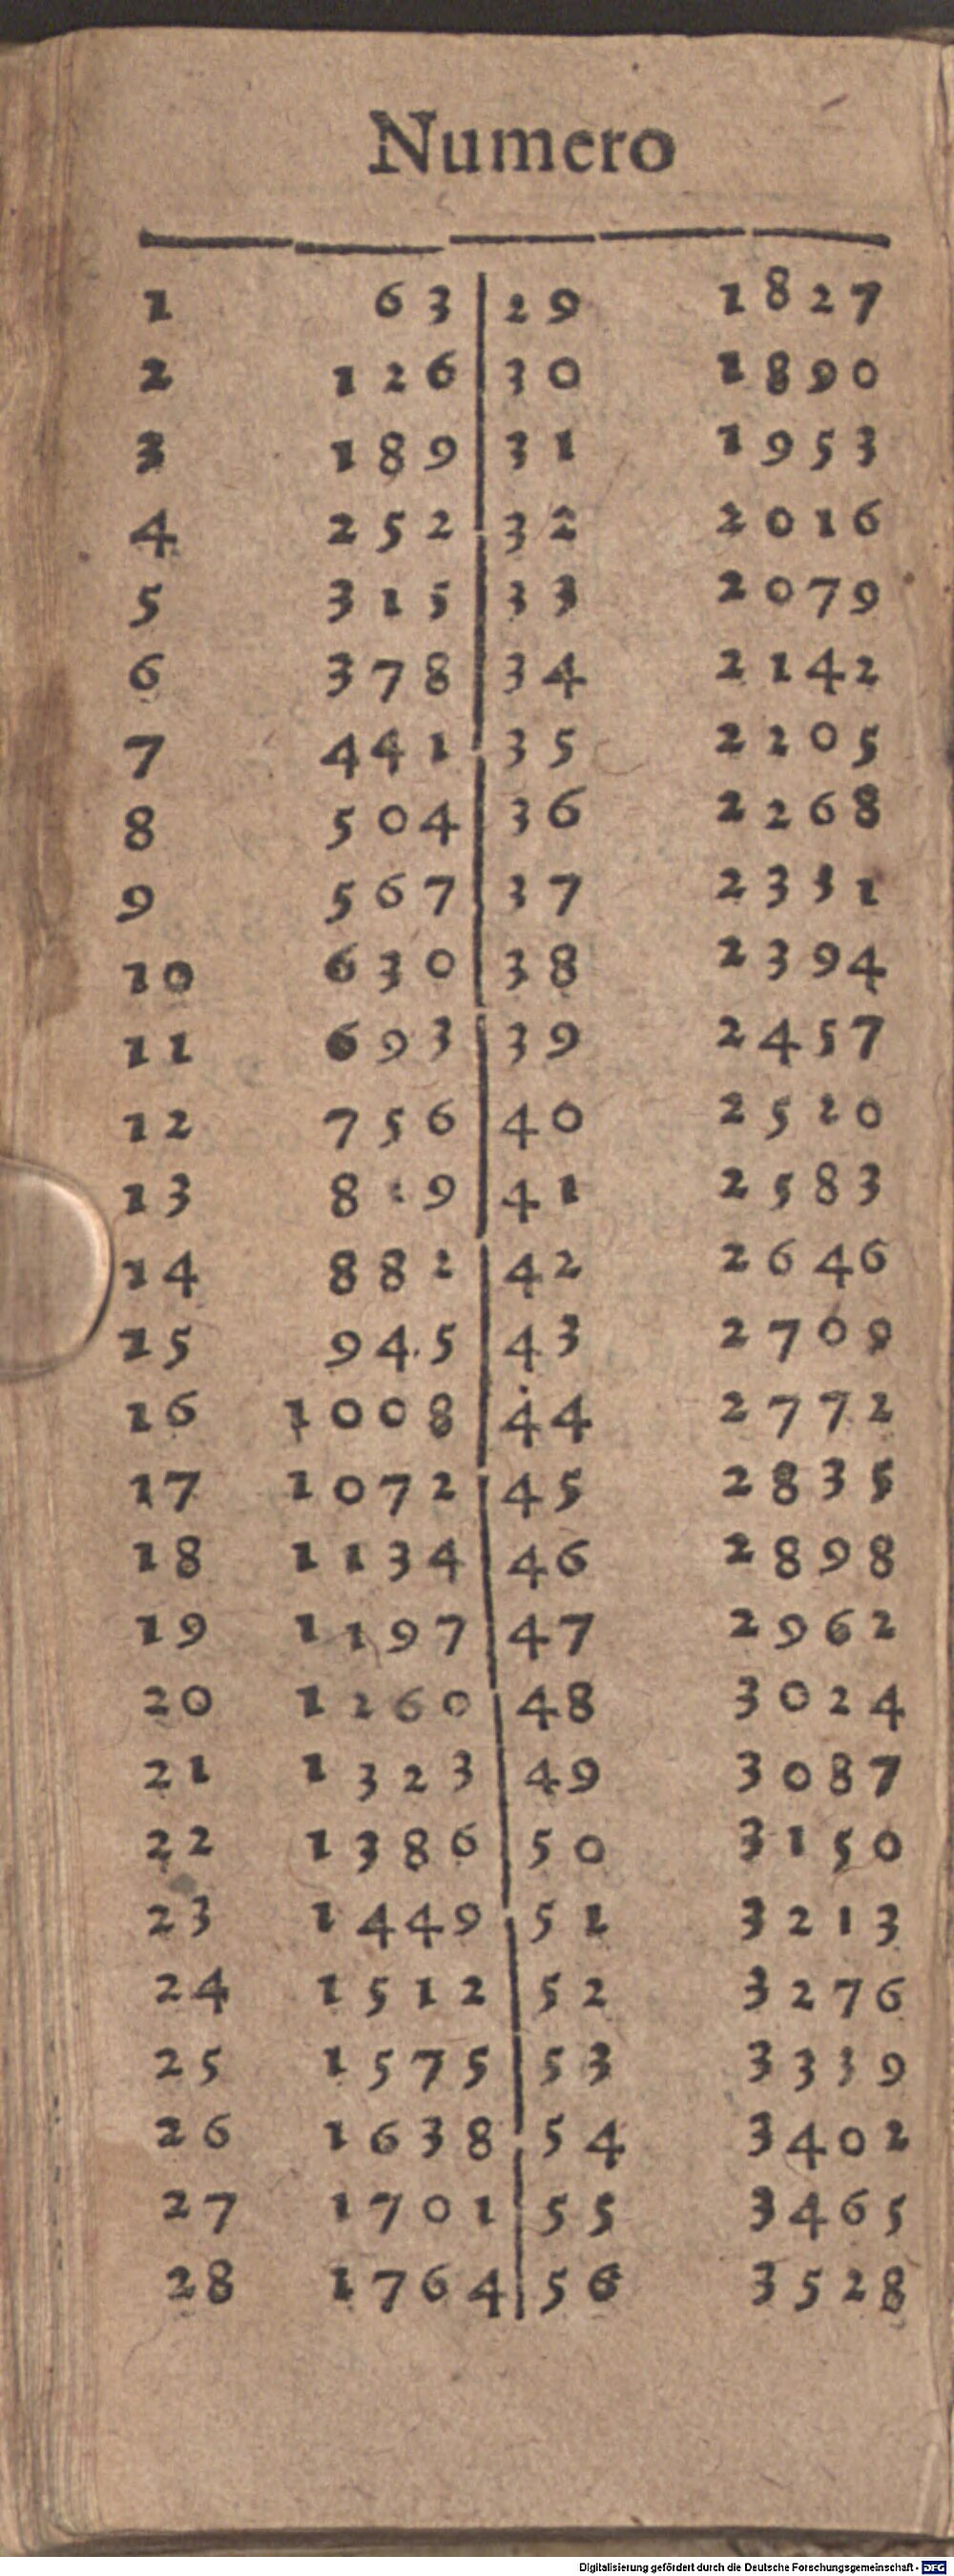 Numero
1 63 29 1827
2 126 30 1890
3 189 31 1953
4 252 32 2016
5 315 33 2079
6 378 34 2142
7 441 35 2205
8 504 36 2268
9 567 37 2331
10 630 38 2394
11 693 39 2457
12 756 40 2520
13 819 41 2583
14 882 42 2646
15 945 43 2709
16 1008 44 2772
17 1072 45 2835
18 1134 46 2898
19 1197 47 2962
20 1260 48 3024
21 1323 49 3087
22 1386 50 3150
23 1449 51 3213
24 1512 52 3276
25 1575 53 3339
26 1638 54 3402
27 1701 55 3465
28 1764 56 3528
Digitalisierung gefördert durch die Deutsche Forschungsgemeinschaft - DFG